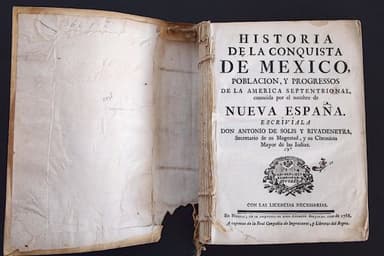 HISTORIA
DE LA CONQUISTA
DE MEXICO,
POBLACION, Y PROGRESSOS
DE LA AMERICA SEPTENTRIONAL,
conocida por el nombre de
NUEVA ESPAÑA.
ESCRIVIALA
DON ANTONIO DE SOLIS Y RIVADENEYRA,
Secretario de su Magestad, y su Chronista
Mayor de las Indias.
CON LAS LICENCIAS NECESSARIAS.
En Madrid, en la Imprenta de
A expensas de la Real Compañia de Impressores, y Libreros del Reyno.